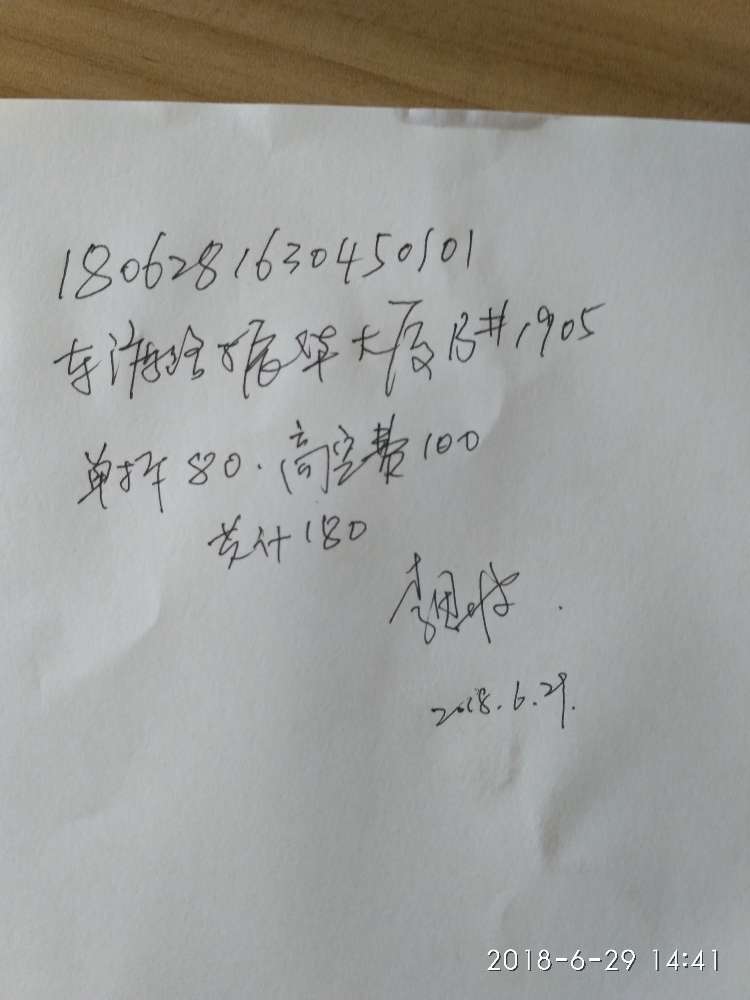 1806281630450101
东海路振华大厦B#1905
单拆 80. 高空费100
共计180
2018.6.29.
2018-6-29 14:41